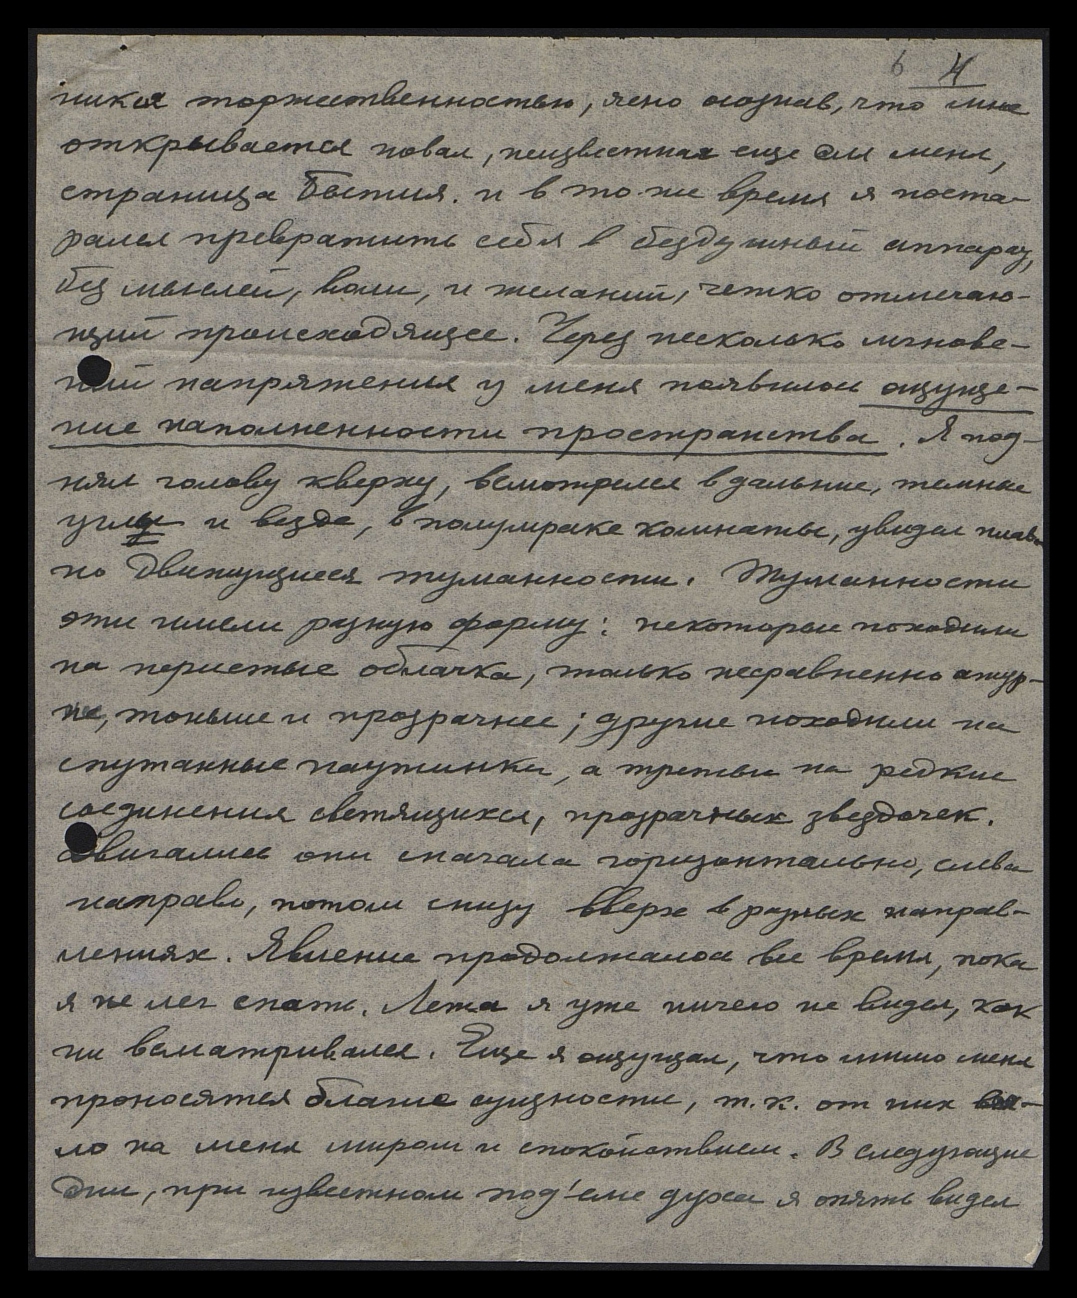 6 4
никся торжественностью, ясно осознав, что мне
открывается новая, неизвестная еще для меня,
страница Бытия. и в то-же время я поста-
рался превратить себя в бездушный аппарат,
без мыслей, воли, и желаний, четко отмечаю-
щий происходящее. Через несколько мгнове-
ний напряжения у меня появилось ощуще-
ние наполненности пространства. Я под-
нял голову кверху, всмотрелся в дальние, темные
углы и везде, в полумраке комнаты, увидел плав-
но движущиеся туманности. Туманности
эти имели разную форму: некоторые походили
на перистые облачка, только несравненно ажур-
не, тоньше и прозрачнее; другие походили на
спутанные паутинки, а третьи на редкие
соединения светящихся, прозрачных звездочек.
Двигались они сначала горизонтально, слева
направо, потом снизу вверх в разных направ-
лениях. Явление продолжалось все время, пока
я не лег спать. Лежа я уже ничего не видел, как
ни всматривался. Еще я ощущал, что мимо меня
проносятся благие сущности, т.к. от них вея-
ло на меня миром и спокойствием. В следующие
дни, при известном под'еме духа я опять видел